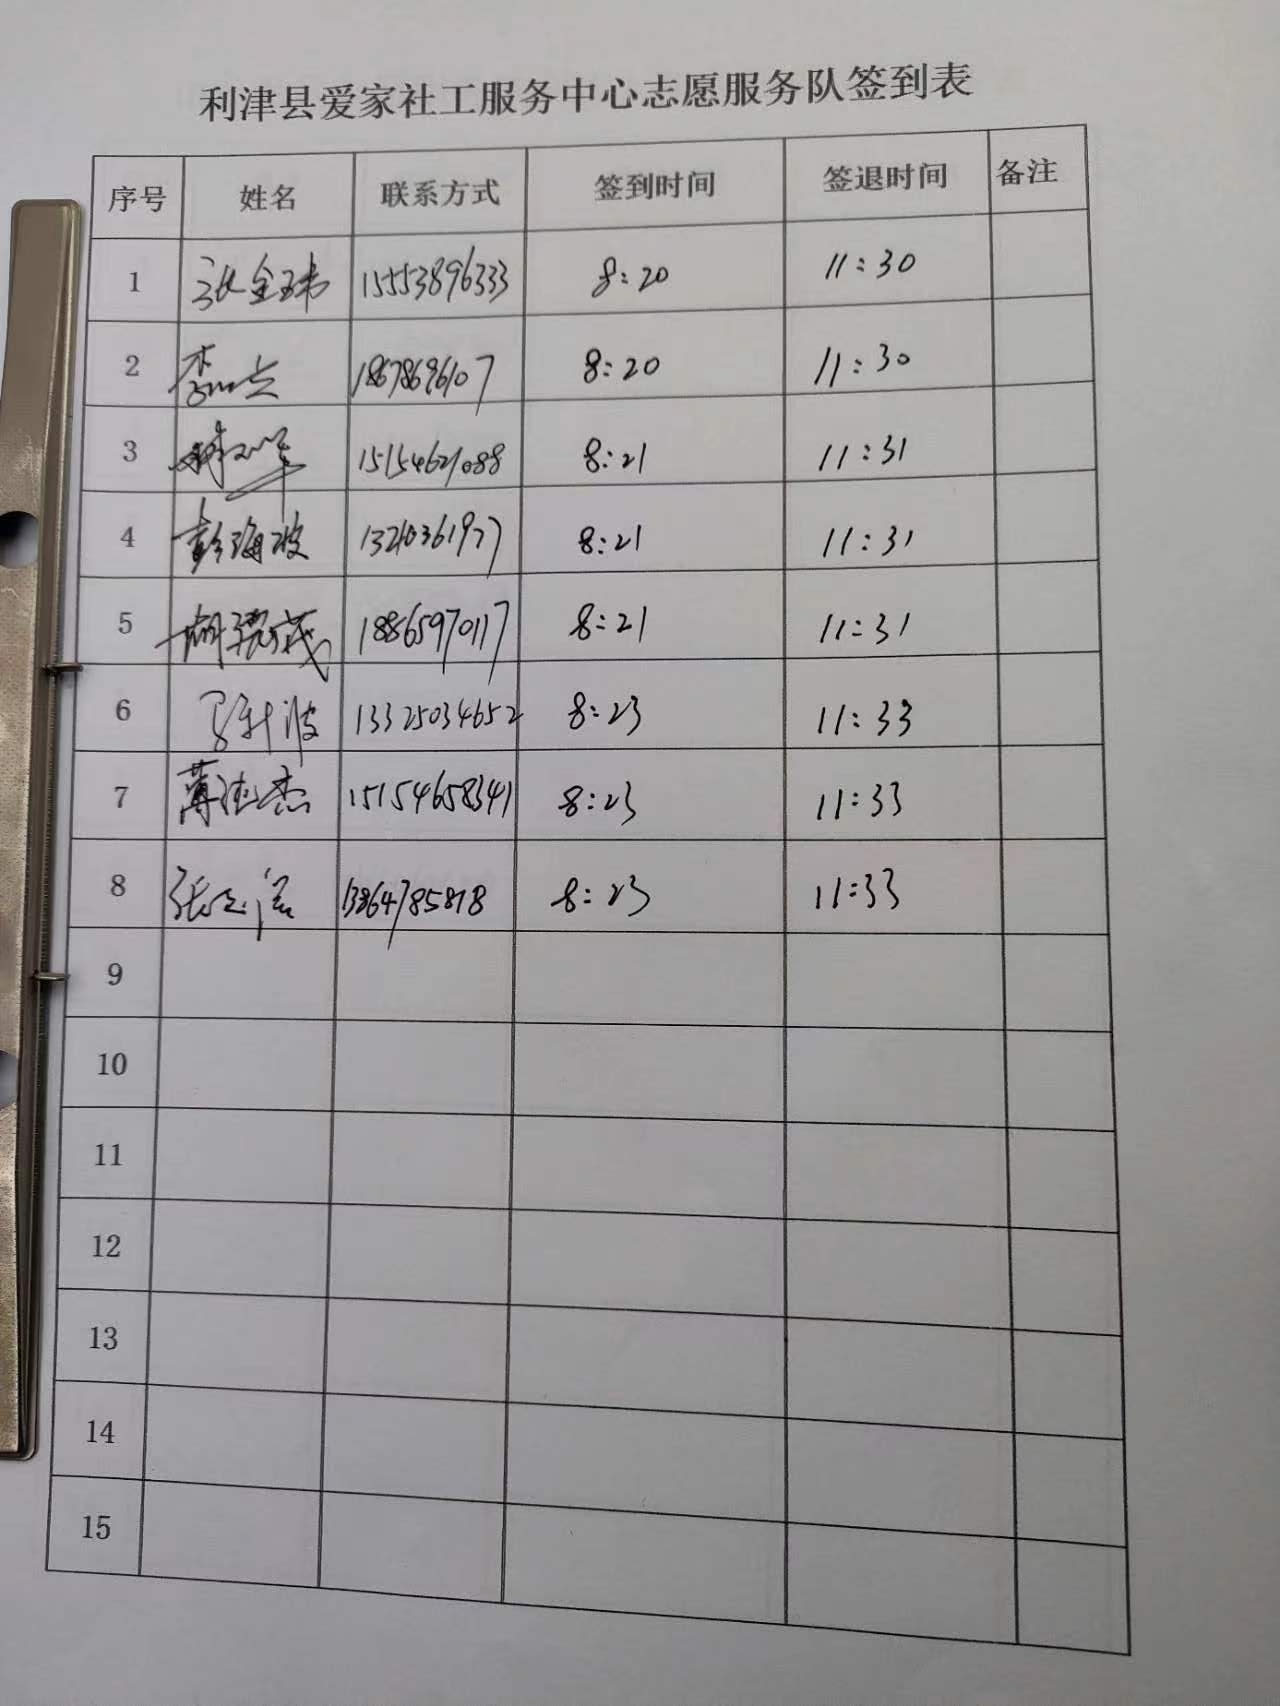 利津县爱家社工服务中心志愿服务队签到表
序号 姓名 联系方式 签到时间 签退时间 备注
1 张金玮 15553896333 8:20 11:30
2 18678696107 8:20 11:30
3 15154621088 8:21 11:31
4 彭海波 13210361977 8:21 11:31
5 18865970117 8:21 11:31
6 13325034652 8:23 11:33
7 15154658341 8:23 11:33
8 8:23 11:33
9
10
11
12
13
14
15